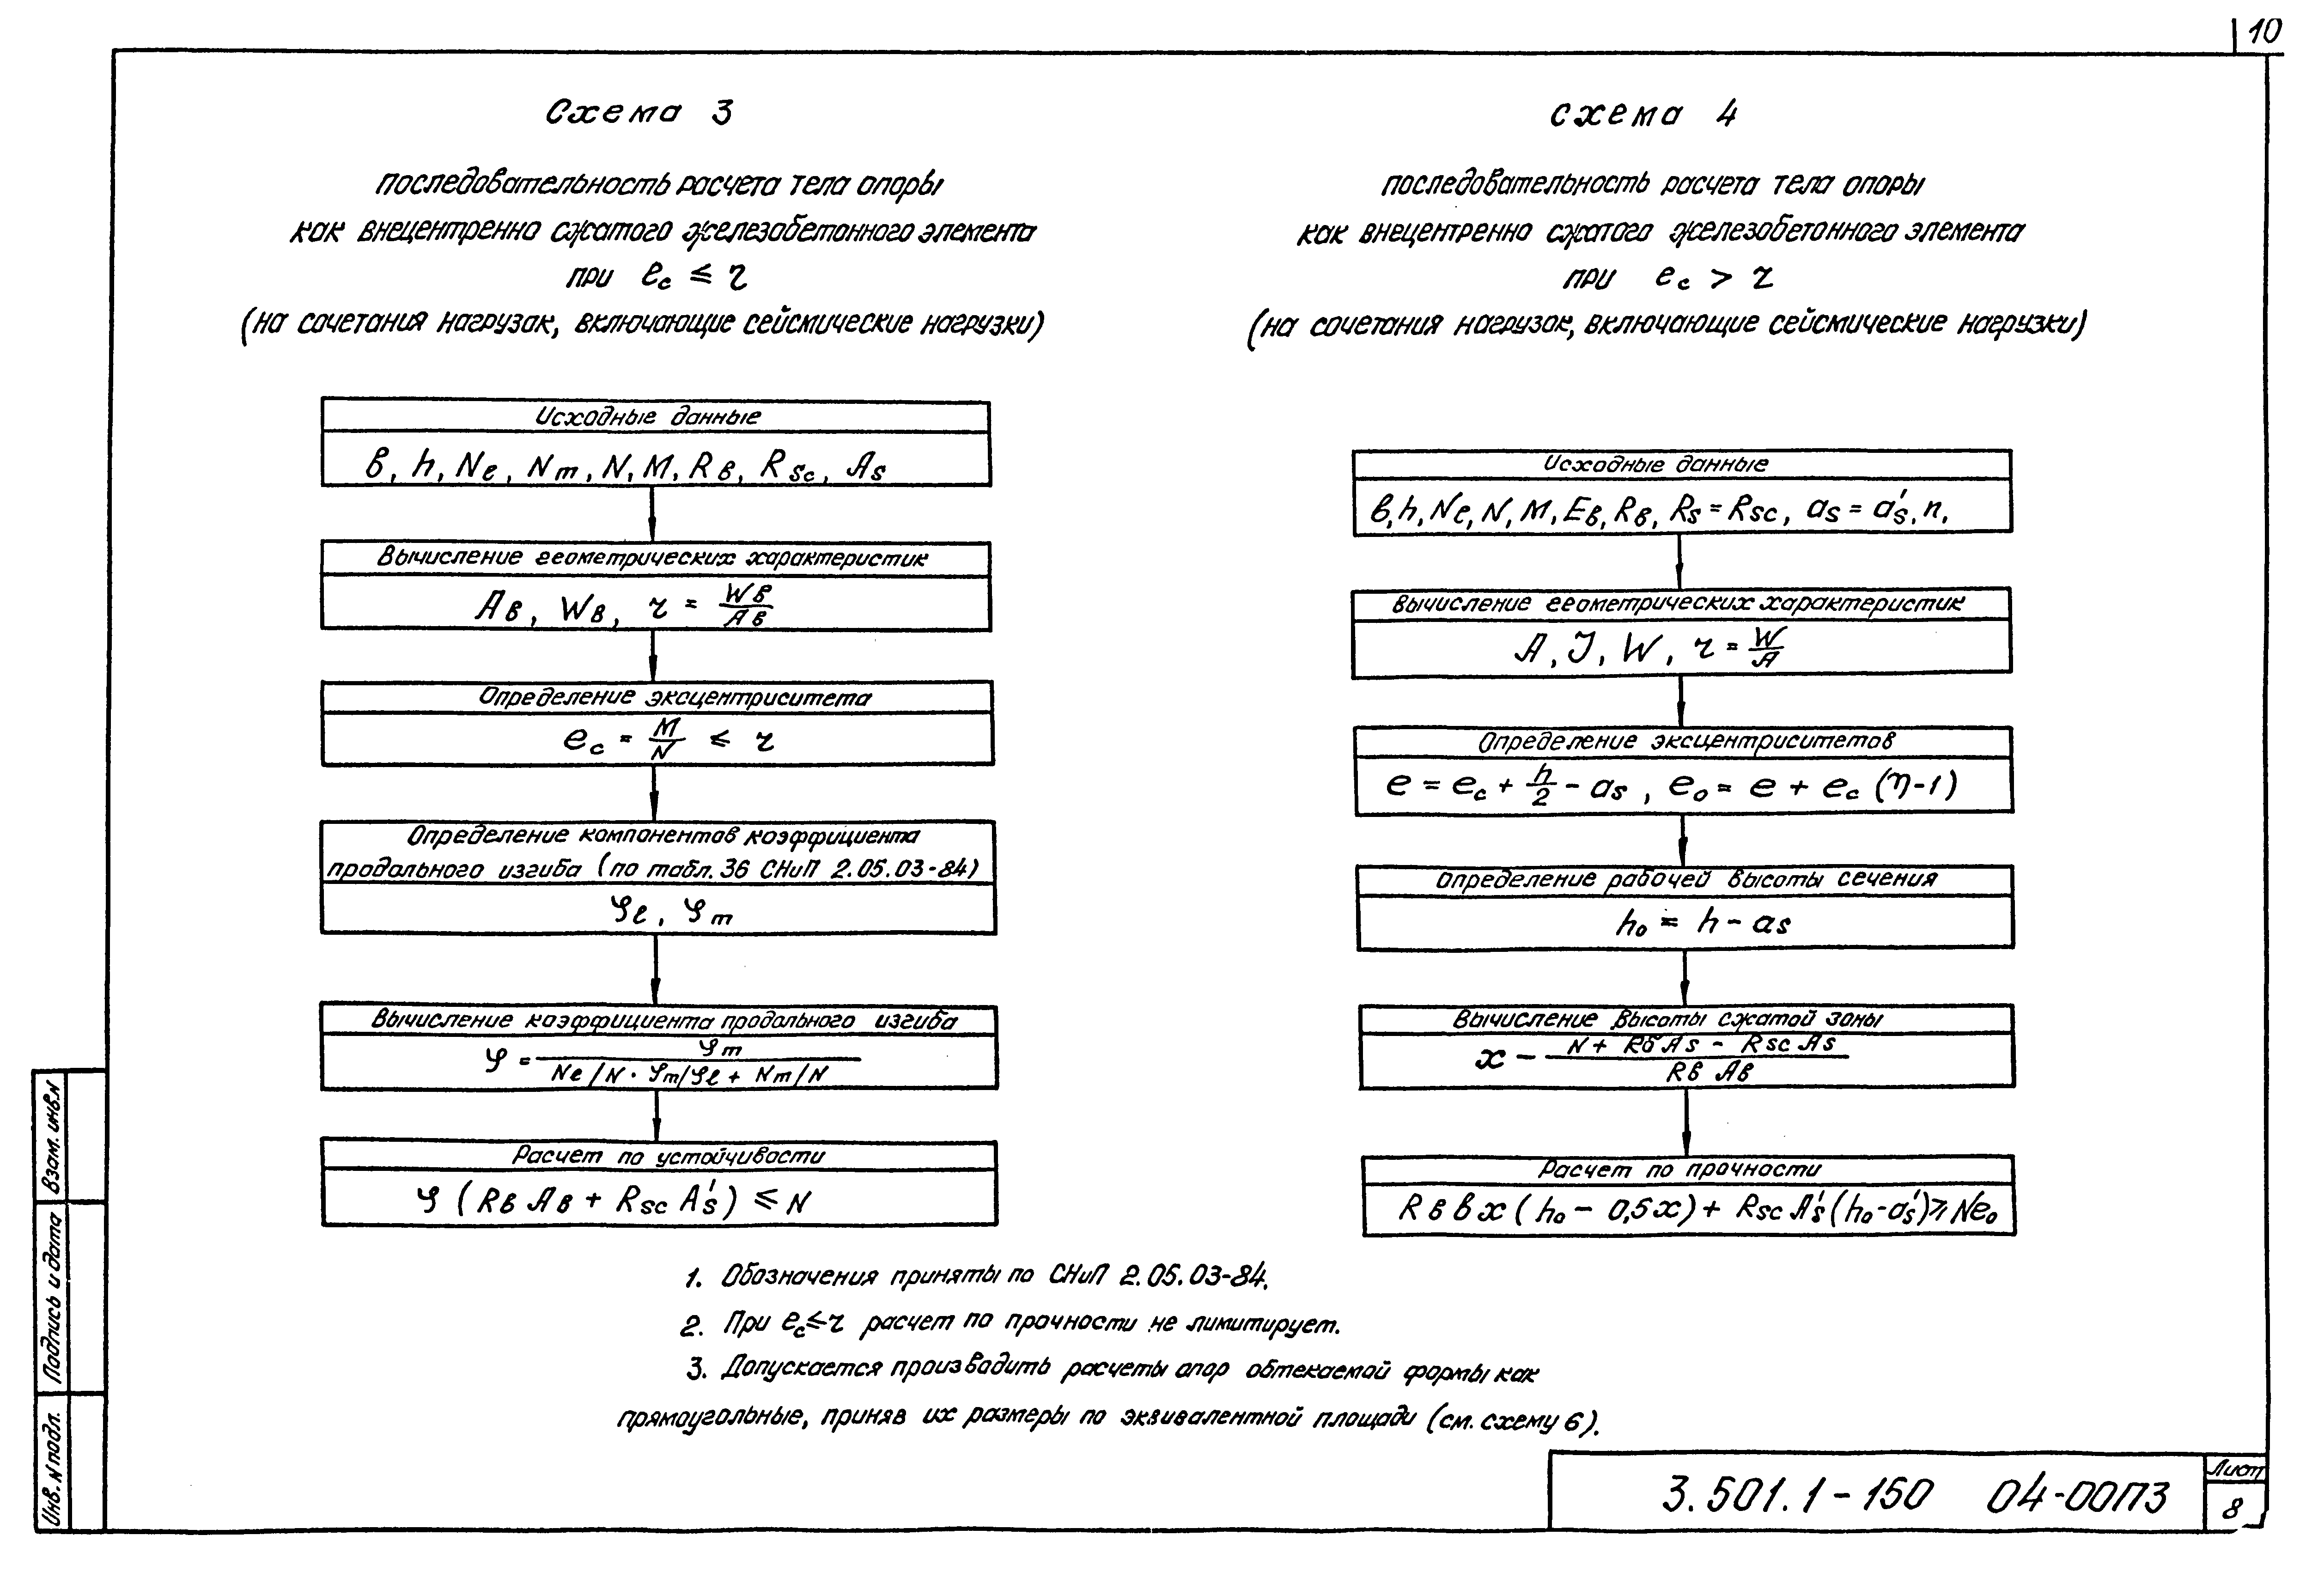 10
Схема 3
последовательность расчета тела опоры
как внецентренно сжатого железобетонного элемента
при ec ≤ r
(на сочетания нагрузок, включающие сейсмические нагрузки)
Исходные данные
в, h, Nℓ, Nm, N, M, Rв, Rsc, As
Вычисление геометрических характеристик
Aв, Wв, r = Wв/Aв
Определение эксцентриситета
ec = M/N ≤ r
Определение компонентов коэффициента
продольного изгиба (по табл. 36 СНиП 2.05.03-84)
φℓ, φm
Вычисление коэффициента продольного изгиба
φ = φm / (Nℓ/N · φm/φℓ + Nm/N)
Расчет по устойчивости
φ (Rв Aв + Rsc A's) ≤ N
схема 4
последовательность расчета тела опоры
как внецентренно сжатого железобетонного элемента
при ec > r
(на сочетания нагрузок, включающие сейсмические нагрузки)
Исходные данные
в, h, Nℓ, N, M, Eв, Rв, Rs = Rsc, as = a's, n,
Вычисление геометрических характеристик
A, J, W, r = W/A
Определение эксцентриситетов
e = ec + h/2 - as, eo = e + ec (η-1)
Определение рабочей высоты сечения
ho = h - as
Вычисление высоты сжатой зоны
x – N + Rб As - Rsc As / Rв Aв
Расчет по прочности
Rв в x (ho - 0,5x) + Rsc A's (ho - a's) ≥ Neo
1. Обозначения приняты по СНиП 2.05.03-84.
2. При ec ≤ r расчет по прочности не лимитирует.
3. Допускается производить расчеты опор обтекаемой формы как
прямоугольные, приняв их размеры по эквивалентной площади (см. схему 6).
Взам. инв.N
Подпись и дата
Инв. N подл.
3.501.1-150 04-00ПЗ
Лист
8